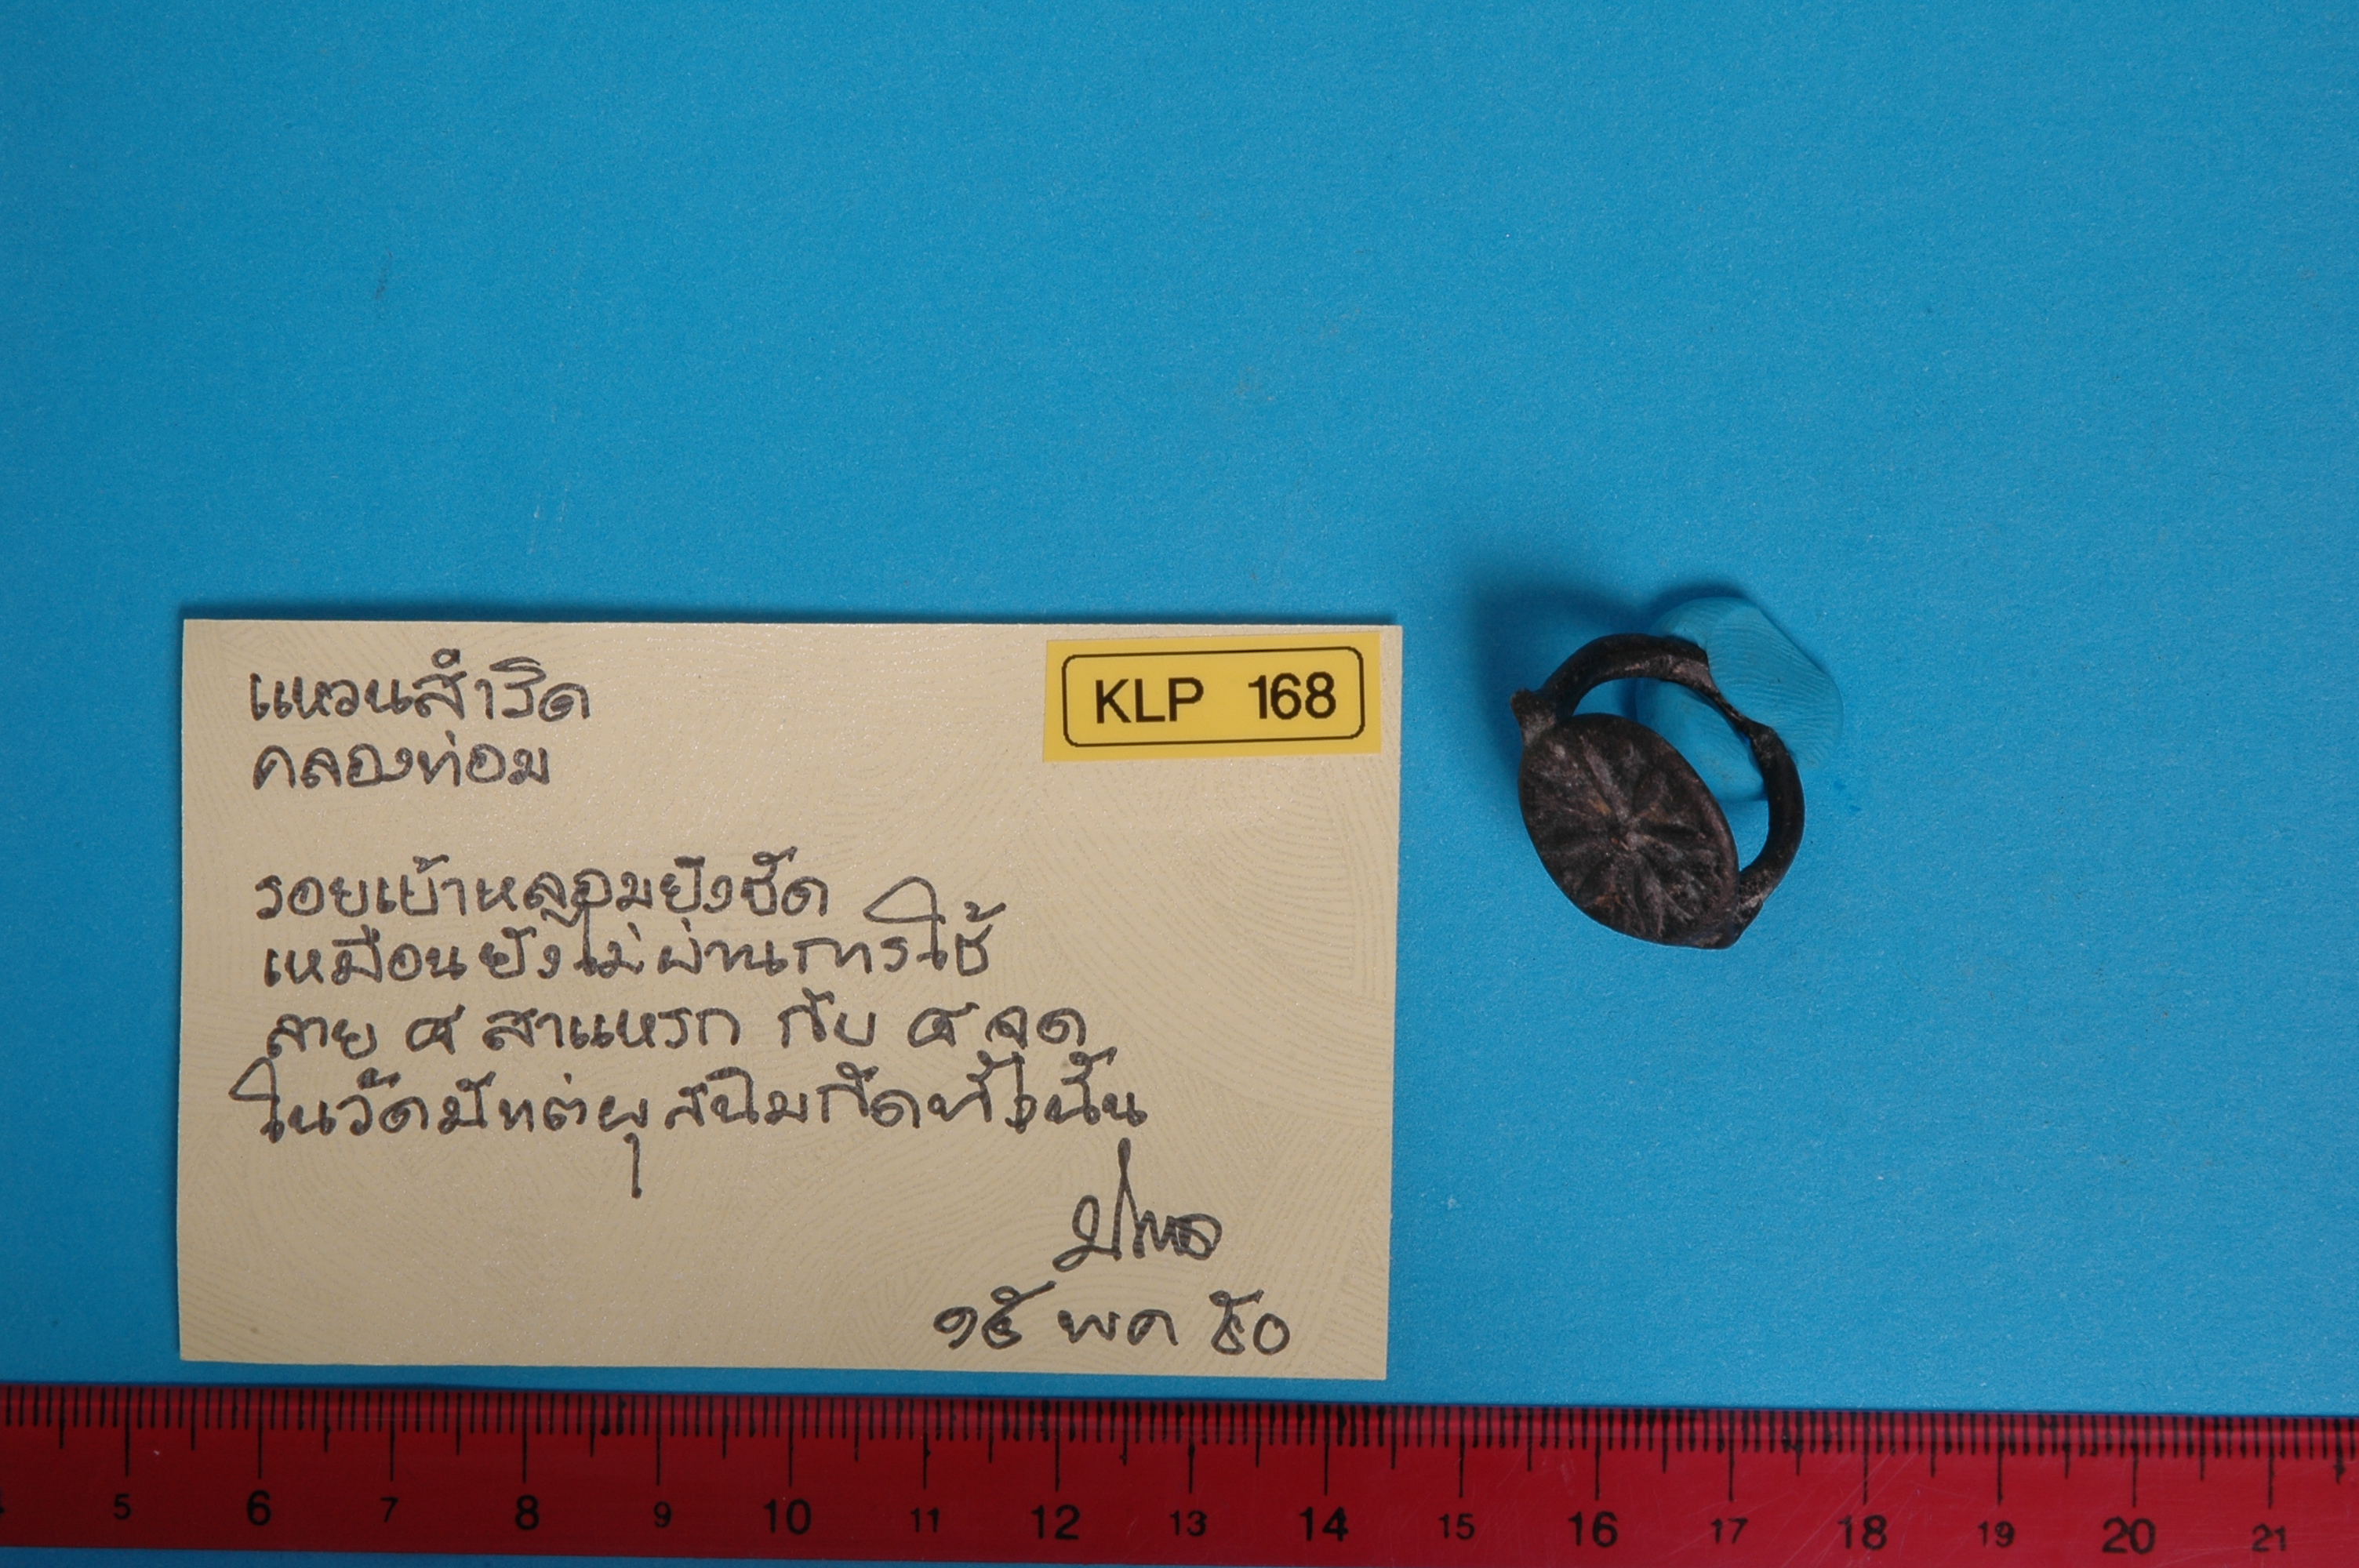 แหวนสำริด
KLP 168
คลองท่อม
รอยเบ้าหลอมยังชัด
เหมือนยังไม่ผ่านการใช้
ลาย ๔ สาแหรก กับ ๔ จุด
ในวัดมีแต่ผุสนิมกัดทั้งนั้น
๑๕ พค ๕๐
5 6 7 8 9 10 11 12 13 14 15 16 17 18 19 20 21